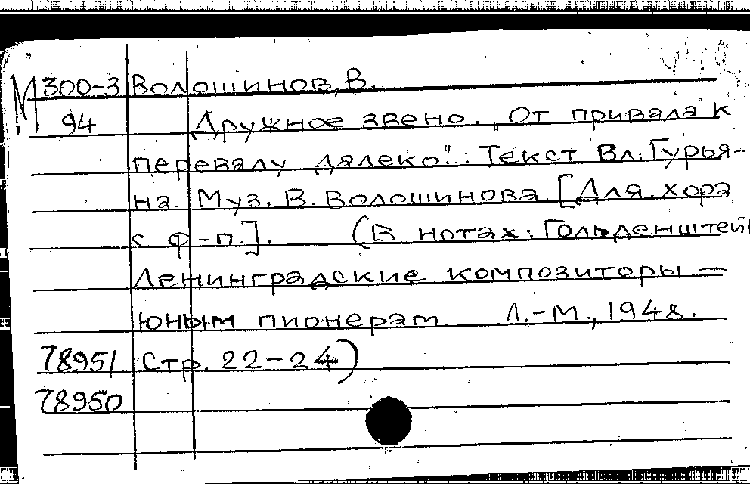 М 300-3 Волошинов, В.
94 Дружное звено. "От привала к
перевалу далеко". Текст Вл. Гурья-
на Муз. В. Волошинова [Для хора
с ф-п.]. (В нотах: Гольденштейн
Ленинградские композиторы —
юным пионерам Л.-М., 1948.
78951 Стр. 22-24)
78950